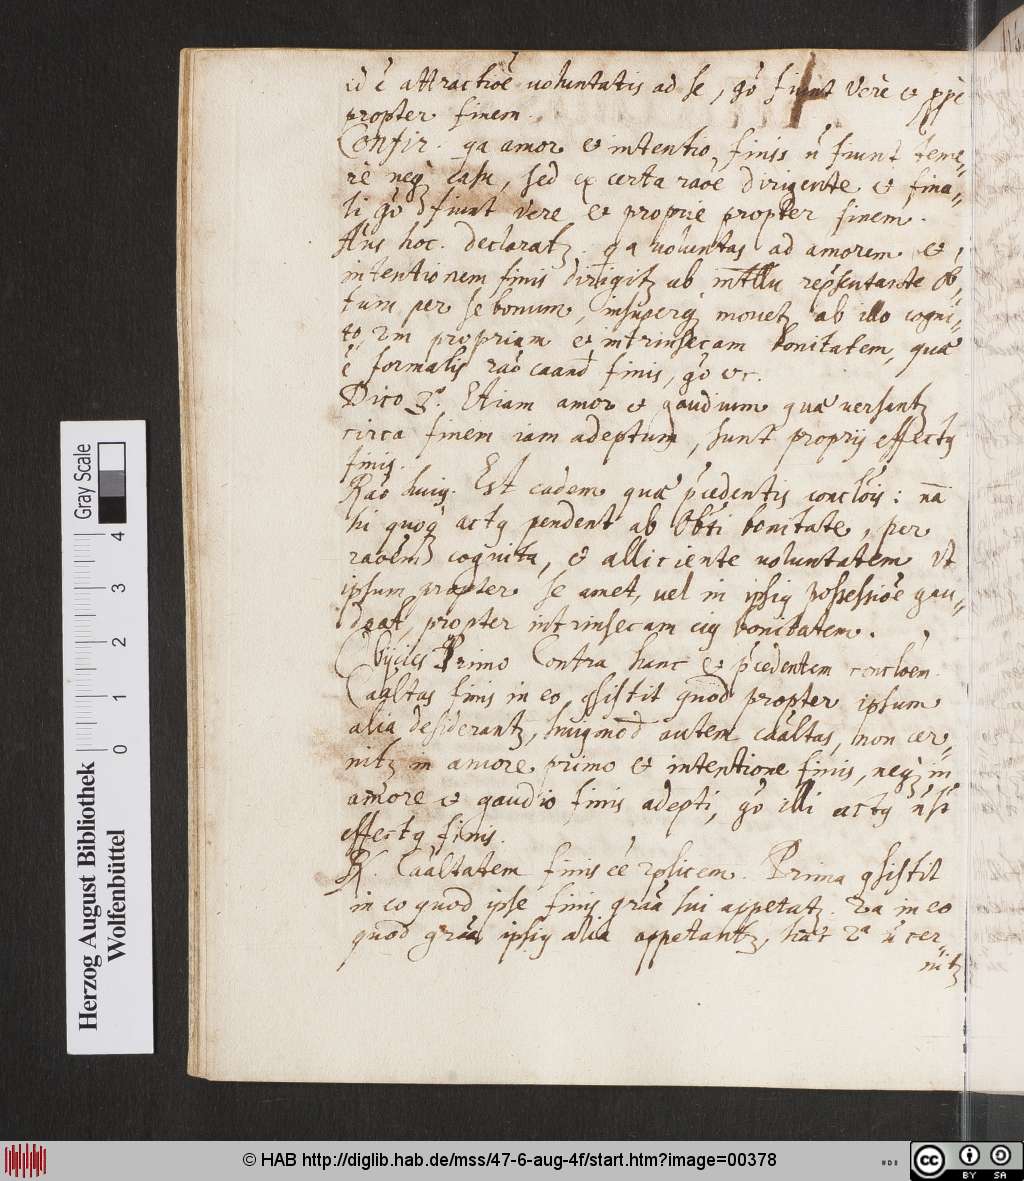 id ē attractiōe voluntatis ad se, gō fiunt verè et ppè
propter finem.
Confir. qa amor et intentio finis n̄ fiunt teme=
rè neq̄ casu, sed ex certa raōe dirigente et fina=
li gō fiunt vere et proprie propter finem.
Añs hoc. declaratz. qa voluntas ad amorem et
intentionem finis dirigitz ab intllu rep̄sentante ob=
tum per se bonum, insuperq̄ movetz ab illo cogni=
to, propriam et intrinsecam bonitatem, quæ
ē formalis raō caandi finis, gō etc.
Dico 3º. Etiam amor et gaudium quæ versantz
circa finem iam adeptum, sunt proprij effectꝰ
finis.
Raō huiꝰ. Est eadem quæ p̄cedentis conclōis: nā
hi quoq̄ actꝰ pendent ab obti bonitate, per
raōem cognita, et alliciente voluntatem vt
ipsum propter se amet, vel in ipsiꝰ possessiōe gau=
deat, propter intrinsecam eiꝰ bonitatem.
Obijcies Primo Contra hanc et p̄cedentem conclōem.
Caāltas finis in eo ꝯsistit quod propter ipsum
alia desiderantz, huiꝰmod autem caāltas, non cer=
nitz in amore primo et intentione finis, neq̄ in
amore et gaudio finis adepti, gō illi actꝰ n̄ st
effectꝰ finis.
R. Caāltatem finis eē 2plicem. Prima ꝯsistit
in eo quod ipse finis grāā sui appetatz. 2a in eo
quod grāā ipsiꝰ alia appetantz, hæc 2ª n̄ cer=
nitz
Gray Scale
4
3
2
1
0
Herzog August Bibliothek
Wolfenbüttel
© HAB http://diglib.hab.de/mss/47-6-aug-4f/start.htm?image=00378
cc
BY SA